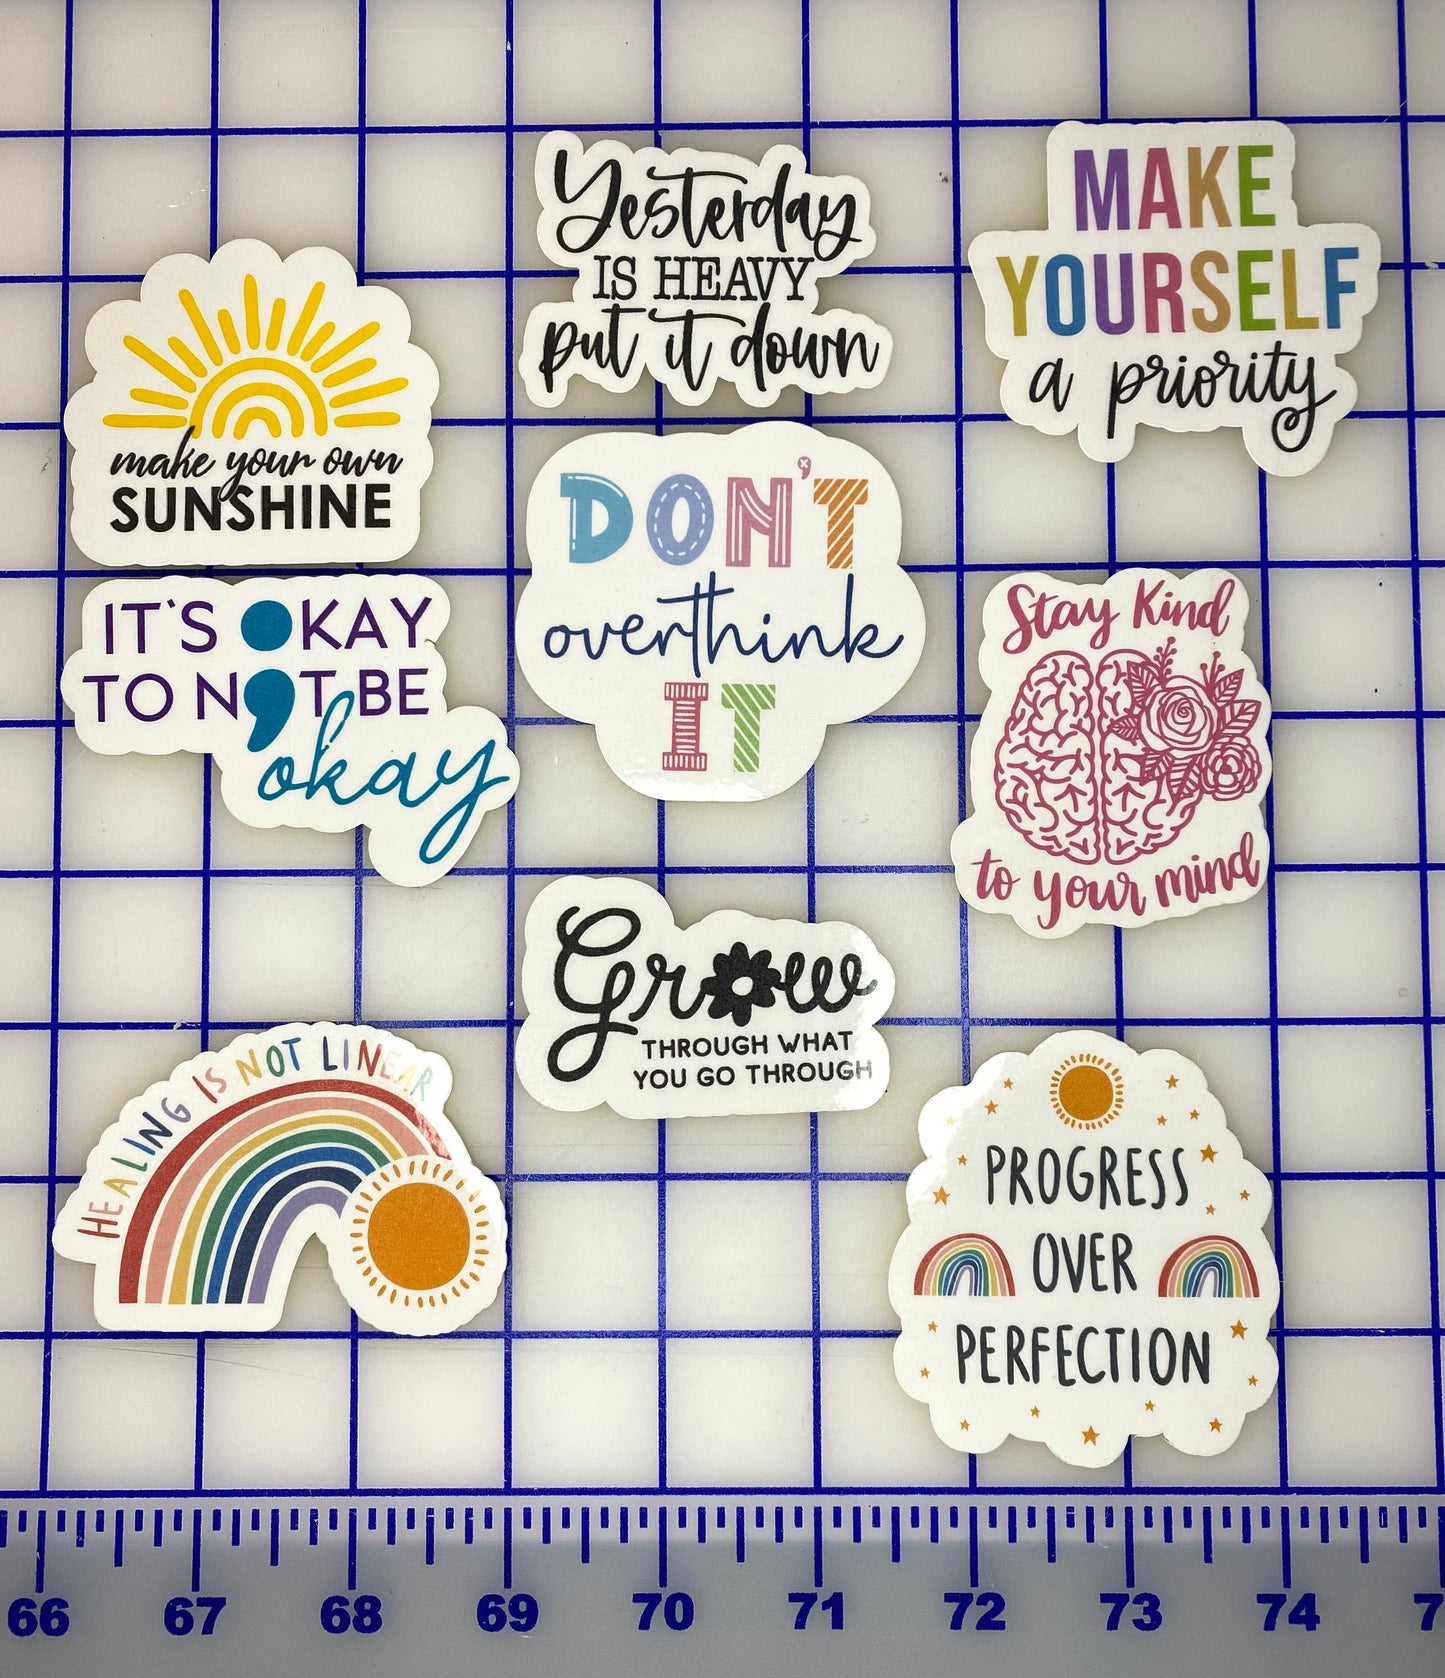 Yesterday
IS HEAVY
put it down
MAKE
YOURSELF
a priority
make your own
SUNSHINE
DON'T
overthink
IT
IT'S OKAY
TO NOT BE
okay
Stay Kind
to your mind
Grow
THROUGH WHAT
YOU GO THROUGH
HEALING IS NOT LINEAR
PROGRESS
OVER
PERFECTION
66 67 68 69 70 71 72 73 74